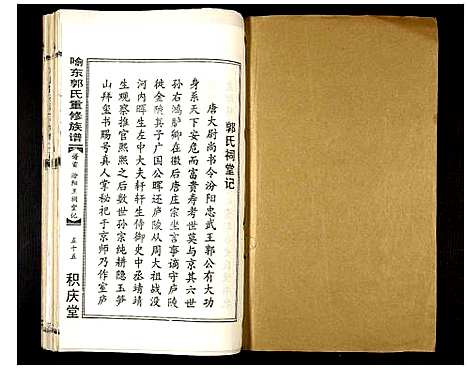 郭氏祠堂记
唐大尉尚书令汾阳忠武王郭公有大功
身系天下安危而富贵寿考世莫与京其六世
孙右鸿胪卿在徽后唐庄宗坐言事谪守庐陵
徙金陵其子广国公晖还庐陵从周大祖战没
河内晖生左中大夫轩轩生侍御史中丞靖靖
生观察推官熙熙之后数世孙宗纯耕隐玉笋
山拜玺书赐号真人掌秘祀于京师乃作室庐
喻东郭氏重修族谱
谱首
汾阳王祠堂记
五十五
积庆堂